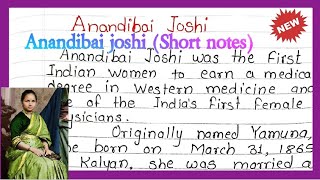 Anandibai Joshi
NEW
Anandibai joshi (Short notes)
Anandibai Joshi was the first
Indian women to earn a medica
degree in Western medicine and
e of the India's first female
ysicians.
Originally named Yamuna,
he born on March 31, 1865
Kalyan, she was married a